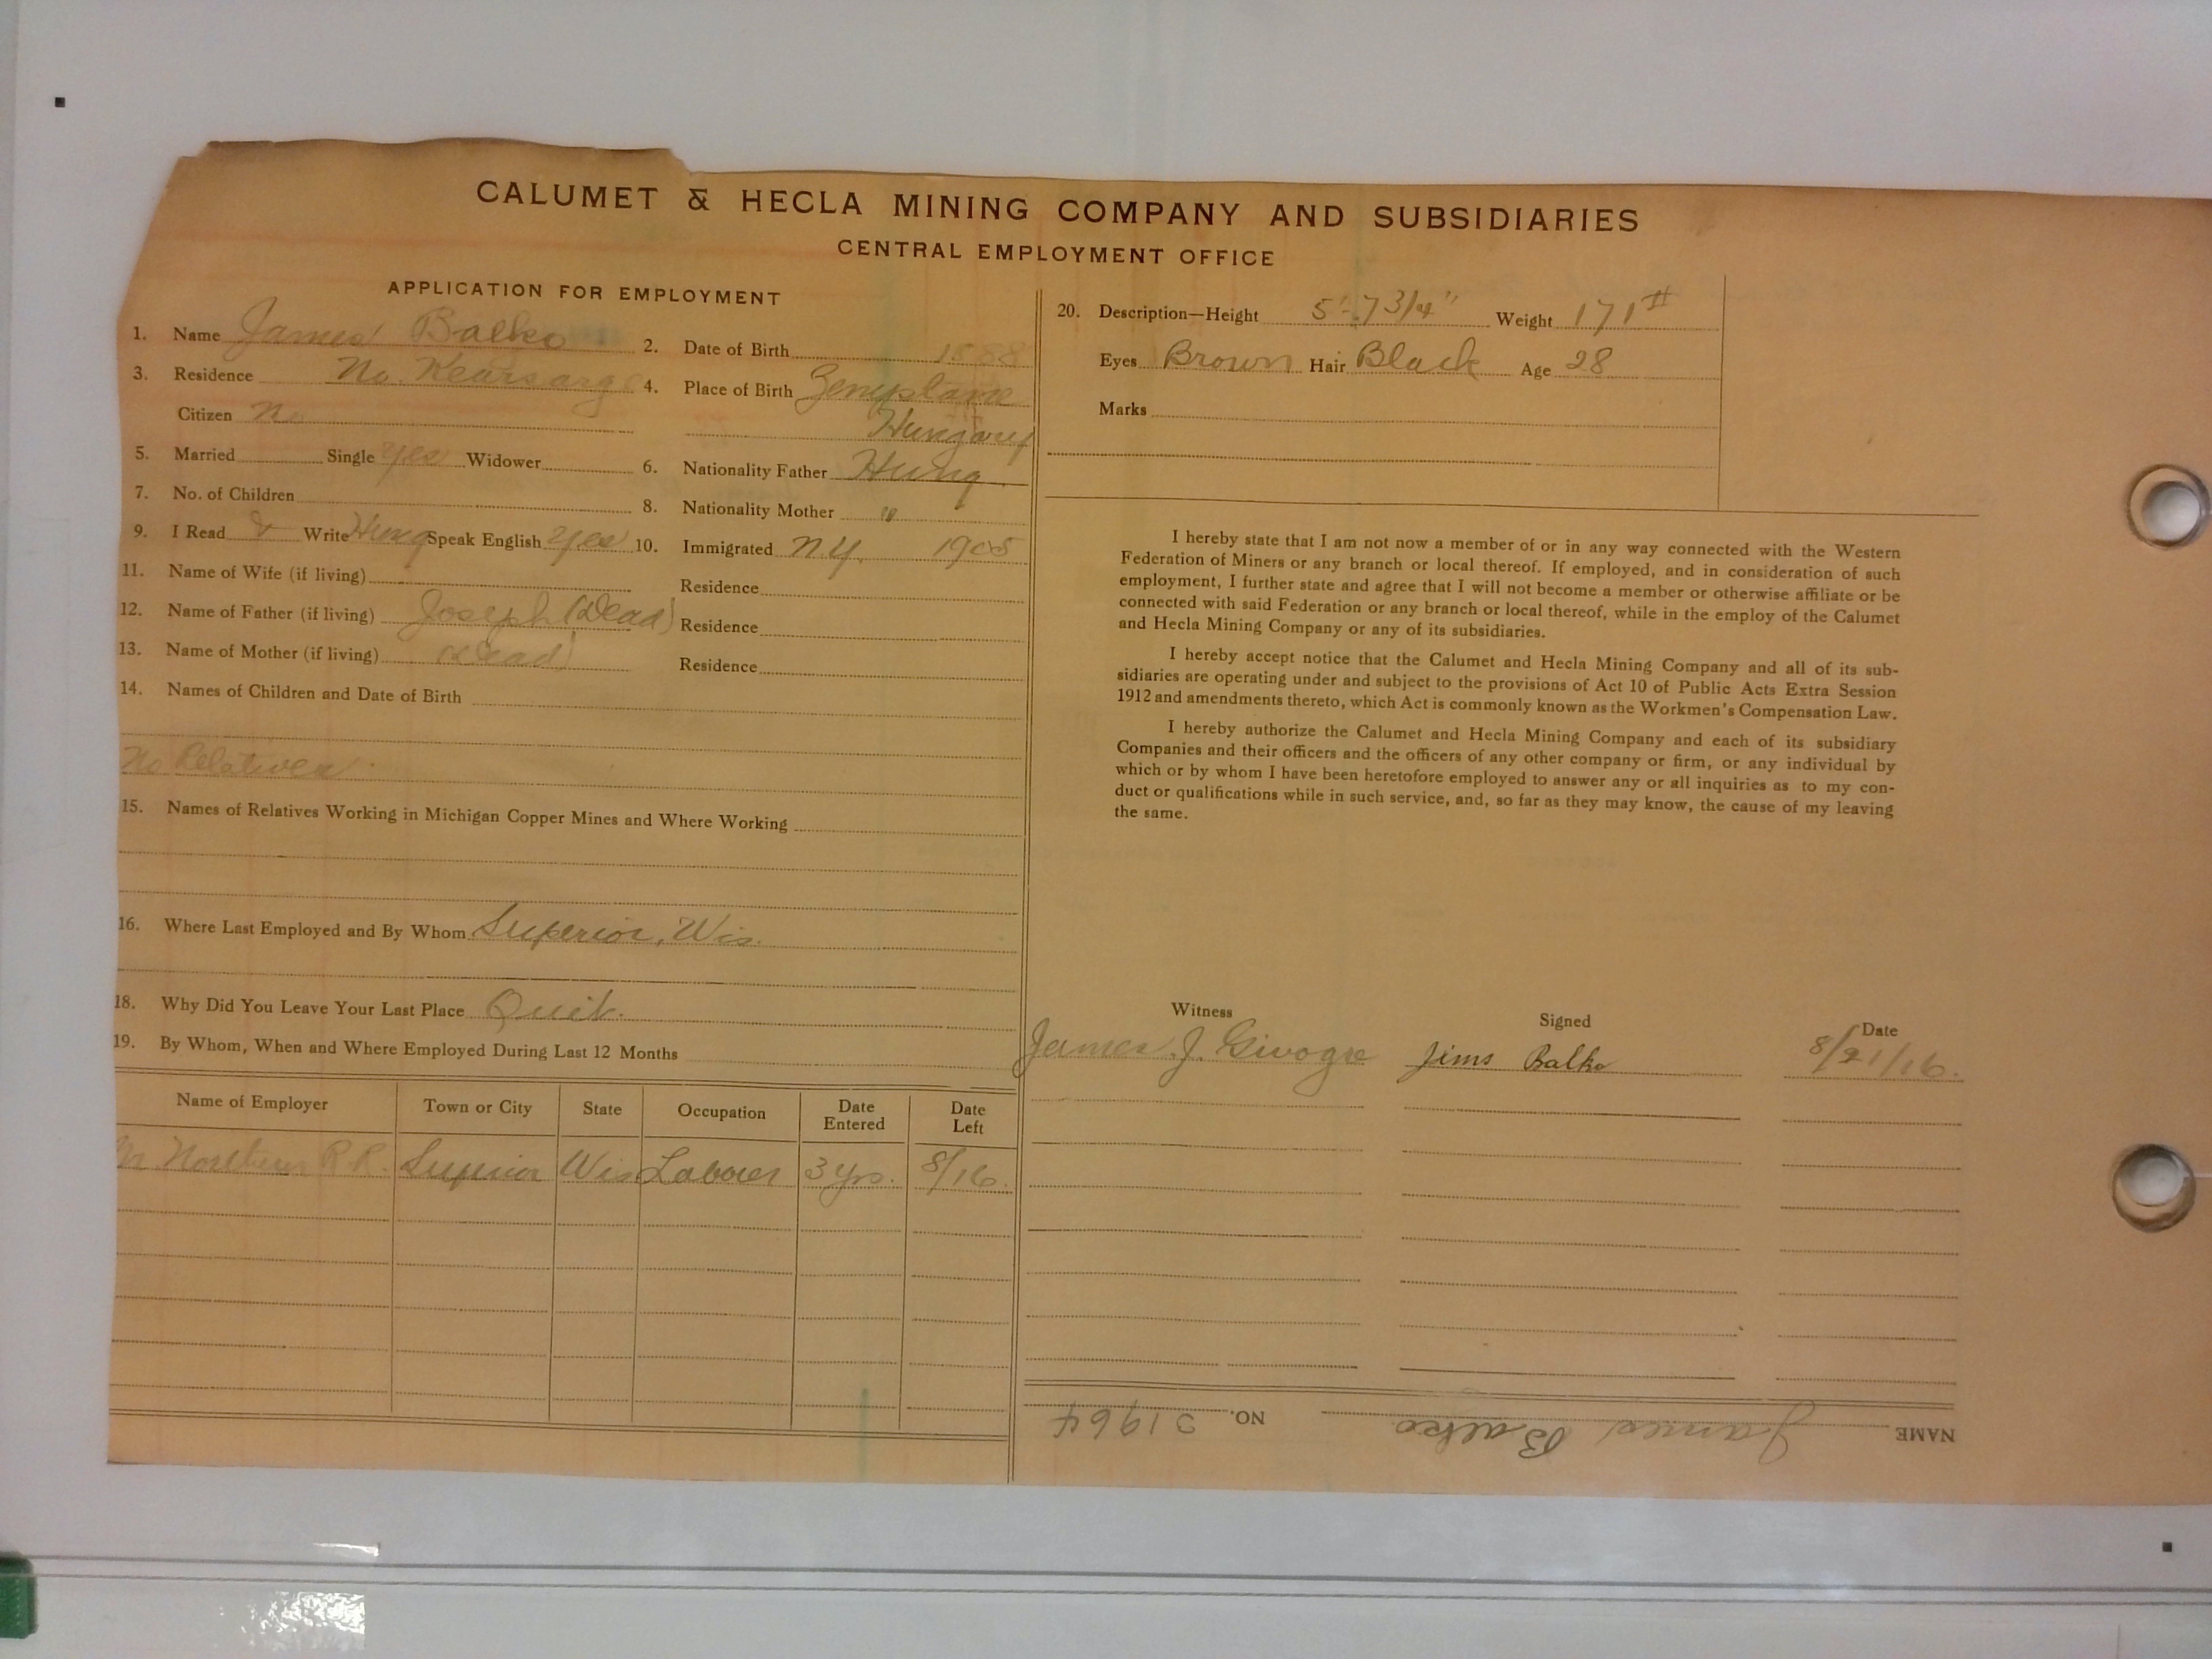 CALUMET & HECLA MINING COMPANY AND SUBSIDIARIES
CENTRAL EMPLOYMENT OFFICE
APPLICATION FOR EMPLOYMENT
1. Name James Balko 2. Date of Birth 1888
3. Residence No. Kearsarge 4. Place of Birth
Citizen No Hungary
5. Married Single yes Widower 6. Nationality Father Hung.
7. No. of Children 8. Nationality Mother "
9. I Read & Write Hung Speak English Yes 10. Immigrated N.Y. 1905
11. Name of Wife (if living) Residence
12. Name of Father (if living) Joseph (Dead) Residence
13. Name of Mother (if living) (Dead) Residence
14. Names of Children and Date of Birth
No Relatives
15. Names of Relatives Working in Michigan Copper Mines and Where Working
16. Where Last Employed and By Whom Superior, Wis.
18. Why Did You Leave Your Last Place Quit.
19. By Whom, When and Where Employed During Last 12 Months
Name of Employer Town or City State Occupation Date Entered Date Left
Northern R.R. Superior Wis Laborer 3 yrs. 8/16.
20. Description—Height 5'-7 3/4" Weight 171#
Eyes Brown Hair Black Age 28
Marks
I hereby state that I am not now a member of or in any way connected with the Western
Federation of Miners or any branch or local thereof. If employed, and in consideration of such
employment, I further state and agree that I will not become a member or otherwise affiliate or be
connected with said Federation or any branch or local thereof, while in the employ of the Calumet
and Hecla Mining Company or any of its subsidiaries.
I hereby accept notice that the Calumet and Hecla Mining Company and all of its sub-
sidiaries are operating under and subject to the provisions of Act 10 of Public Acts Extra Session
1912 and amendments thereto, which Act is commonly known as the Workmen's Compensation Law.
I hereby authorize the Calumet and Hecla Mining Company and each of its subsidiary
Companies and their officers and the officers of any other company or firm, or any individual by
which or by whom I have been heretofore employed to answer any or all inquiries as to my con-
duct or qualifications while in such service, and, so far as they may know, the cause of my leaving
the same.
Witness Signed Date
James J. Jims Balko 8/21/16.
NAME James Balko NO. 21964